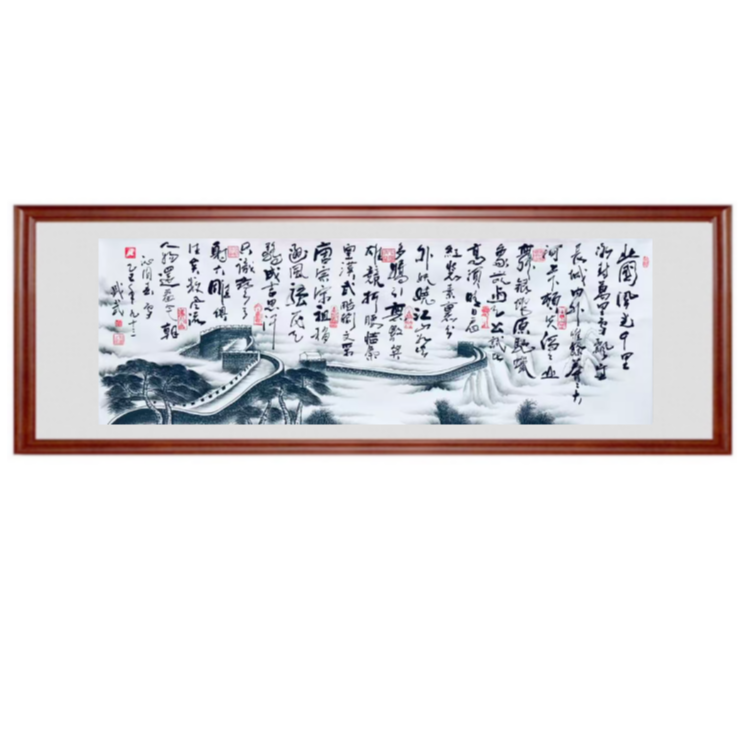 北國風光千里
冰封萬里雪飄望
長城內外惟餘莽莽大
河上下頓失滔滔山
舞銀蛇原馳蠟
象欲與天公試比
高須晴日看
紅裝素裹分
外妖嬈江山如此
多嬌引無數英
雄競折腰惜秦
皇漢武略輸文采
唐宗宋祖稍
遜風騷一代天
驕成吉思汗
只識彎弓
射大雕俱
往矣數風流
人物還看今朝
沁園春雪